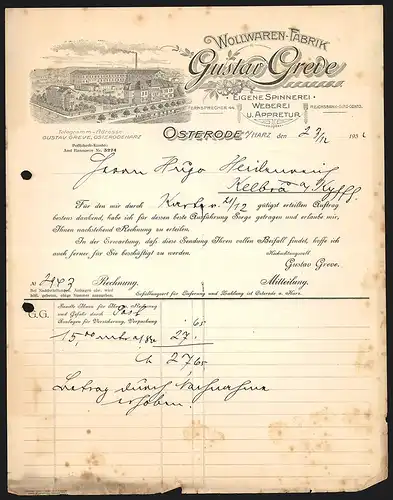 WOLLWAREN-FABRIK
Gustav Greve
EIGENE SPINNEREI
WEBEREI
U. APPRETUR.
FERNSPRECHER
REICHSBANK-GIRO-CONTO.
Telegramm-Adresse:
GUSTAV GREVE, OSTERODEHARZ
Postscheck-Konto:
Amt Hannover Nr. 5274
OSTERODE A/HARZ den 193
Herrn Hugo
Kelbra a/Kyffh.
Für den mir durch Karte v. 21/12 gütigst erteilten Auftrag
bestens dankend, habe ich für dessen beste Ausführung Sorge getragen und erlaube mir,
Ihnen nachstehend Rechnung zu erteilen.
In der Erwartung, daß diese Sendung Ihren vollen Beifall findet, hoffe ich
auch ferner für Sie beschäftigt zu werden.
Hochachtungsvoll
Gustav Greve.
№ Rechnung. Mitteilung.
Erfüllungsort für Lieferung und Zahlung ist Osterode a. Harz.
G.G. Sandte Ihnen für Ihre Rechnung
und Gefahr durch Post
Auslagen für Versicherung, Verpackung 65
15,00 27.
27,65
Betrag durch Nachnahme
erhoben.